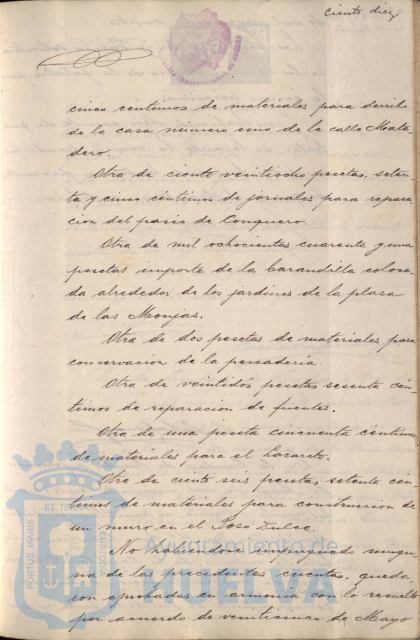 Ciento diez
cinco centimos de materiales para derribo
de la casa número uno de la calle Mata-
dero.
Otra de ciento veintiocho pesetas, seten-
ta y cinco céntimos de jornales para repara-
cion del paseo de Conquero.
Otra de mil ochocientas cuarenta y una
pesetas importe de la barandilla coloca-
da alrededor de los jardines de la plaza
de las Monjas.
Otra de dos pesetas de materiales para
conservacion de la pescadería.
Otra de veintidós pesetas sesenta cén-
timos de reparacion de fuentes.
Otra de una peseta cincuenta céntimos
de materiales para el Lazareto.
Otra de ciento seis pesetas, setenta cén-
timos de materiales para construccion de
un muro en el Poso Dulce.
No habiendose impugnado ningu-
na de las precedentes cuentas, queda-
ron aprobadas en armonía con lo resuelto
por acuerdo de veinticinco de Mayo
Ayuntamiento de
HUELVA
PORTUS MARIS
ET TERRAE
CUSTODIA